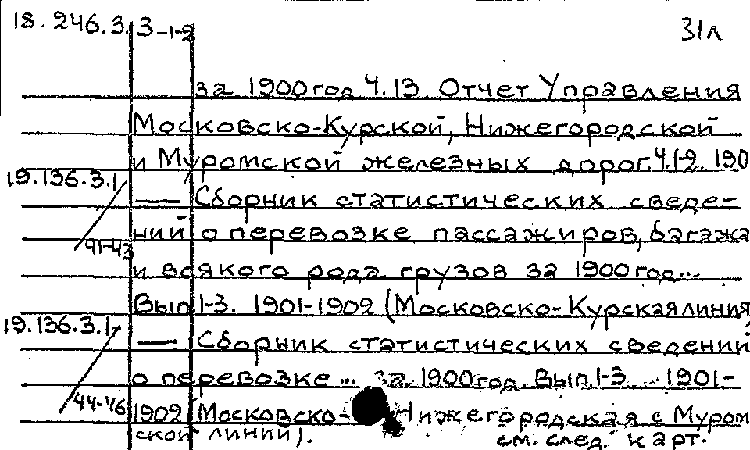 18.246.3. 3-1-2 31л
за 1900 год Ч.13. Отчет Управления
Московско-Курской, Нижегородской
и Муромской железных дорог. Ч.1-2. 190
19.136.3.1
— Сборник статистических сведе-
41-43
ний о перевозке пассажиров, багажа
и всякого рода грузов за 1900 год...
Вып 1-3. 1901-1902 (Московско-Курская линия)
19.136.3.1
— Сборник статистических сведений
о перевозке... за 1900 год. Вып 1-3. 1901-
44-46
1902 (Московско- Нижегородская с Муром
ской линии).
см. след. карт.